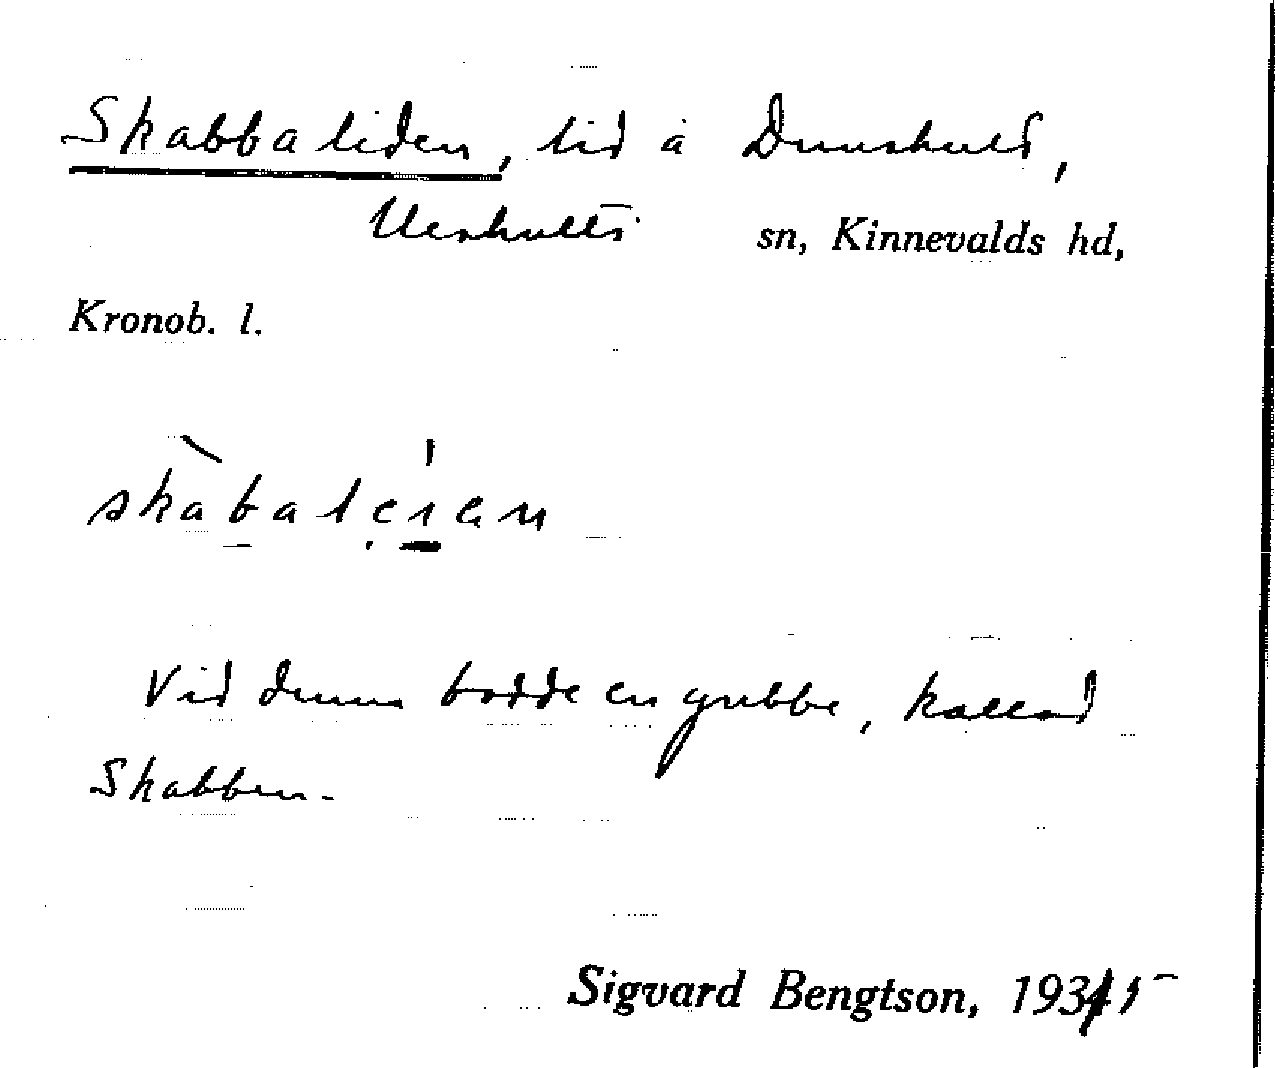 Skabbaliden, lid å Dunshult,
Virestads sn, Kinnevalds hd,
Kronob. l.
skabaleıen
Vid denna bodde en gubbe, kallad
Skabben.
Sigvard Bengtson, 1935